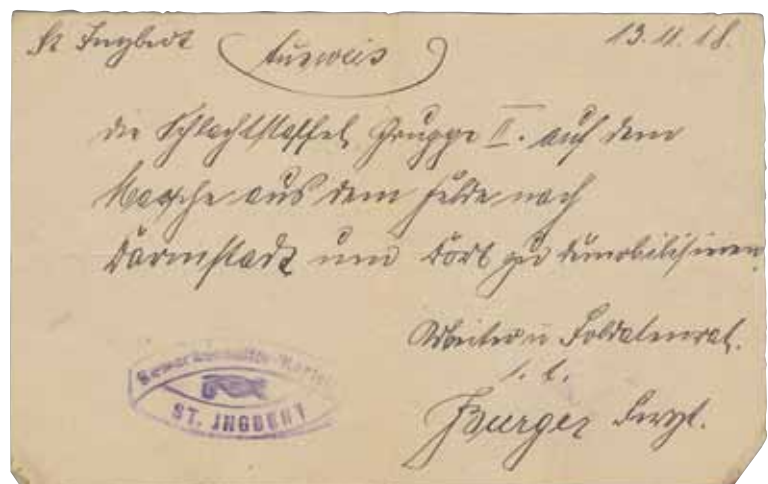 St Ingbert Ausweis 13.11.18.
die Schlachtstaffel Gruppe II. auf dem
Marsche aus dem Felde nach
Darmstadt um dort zu demobilisieren
Arbeiter u Soldatenrat.
Burger Sergt.
Gewerkschafts-Kartell
ST. INGBERT